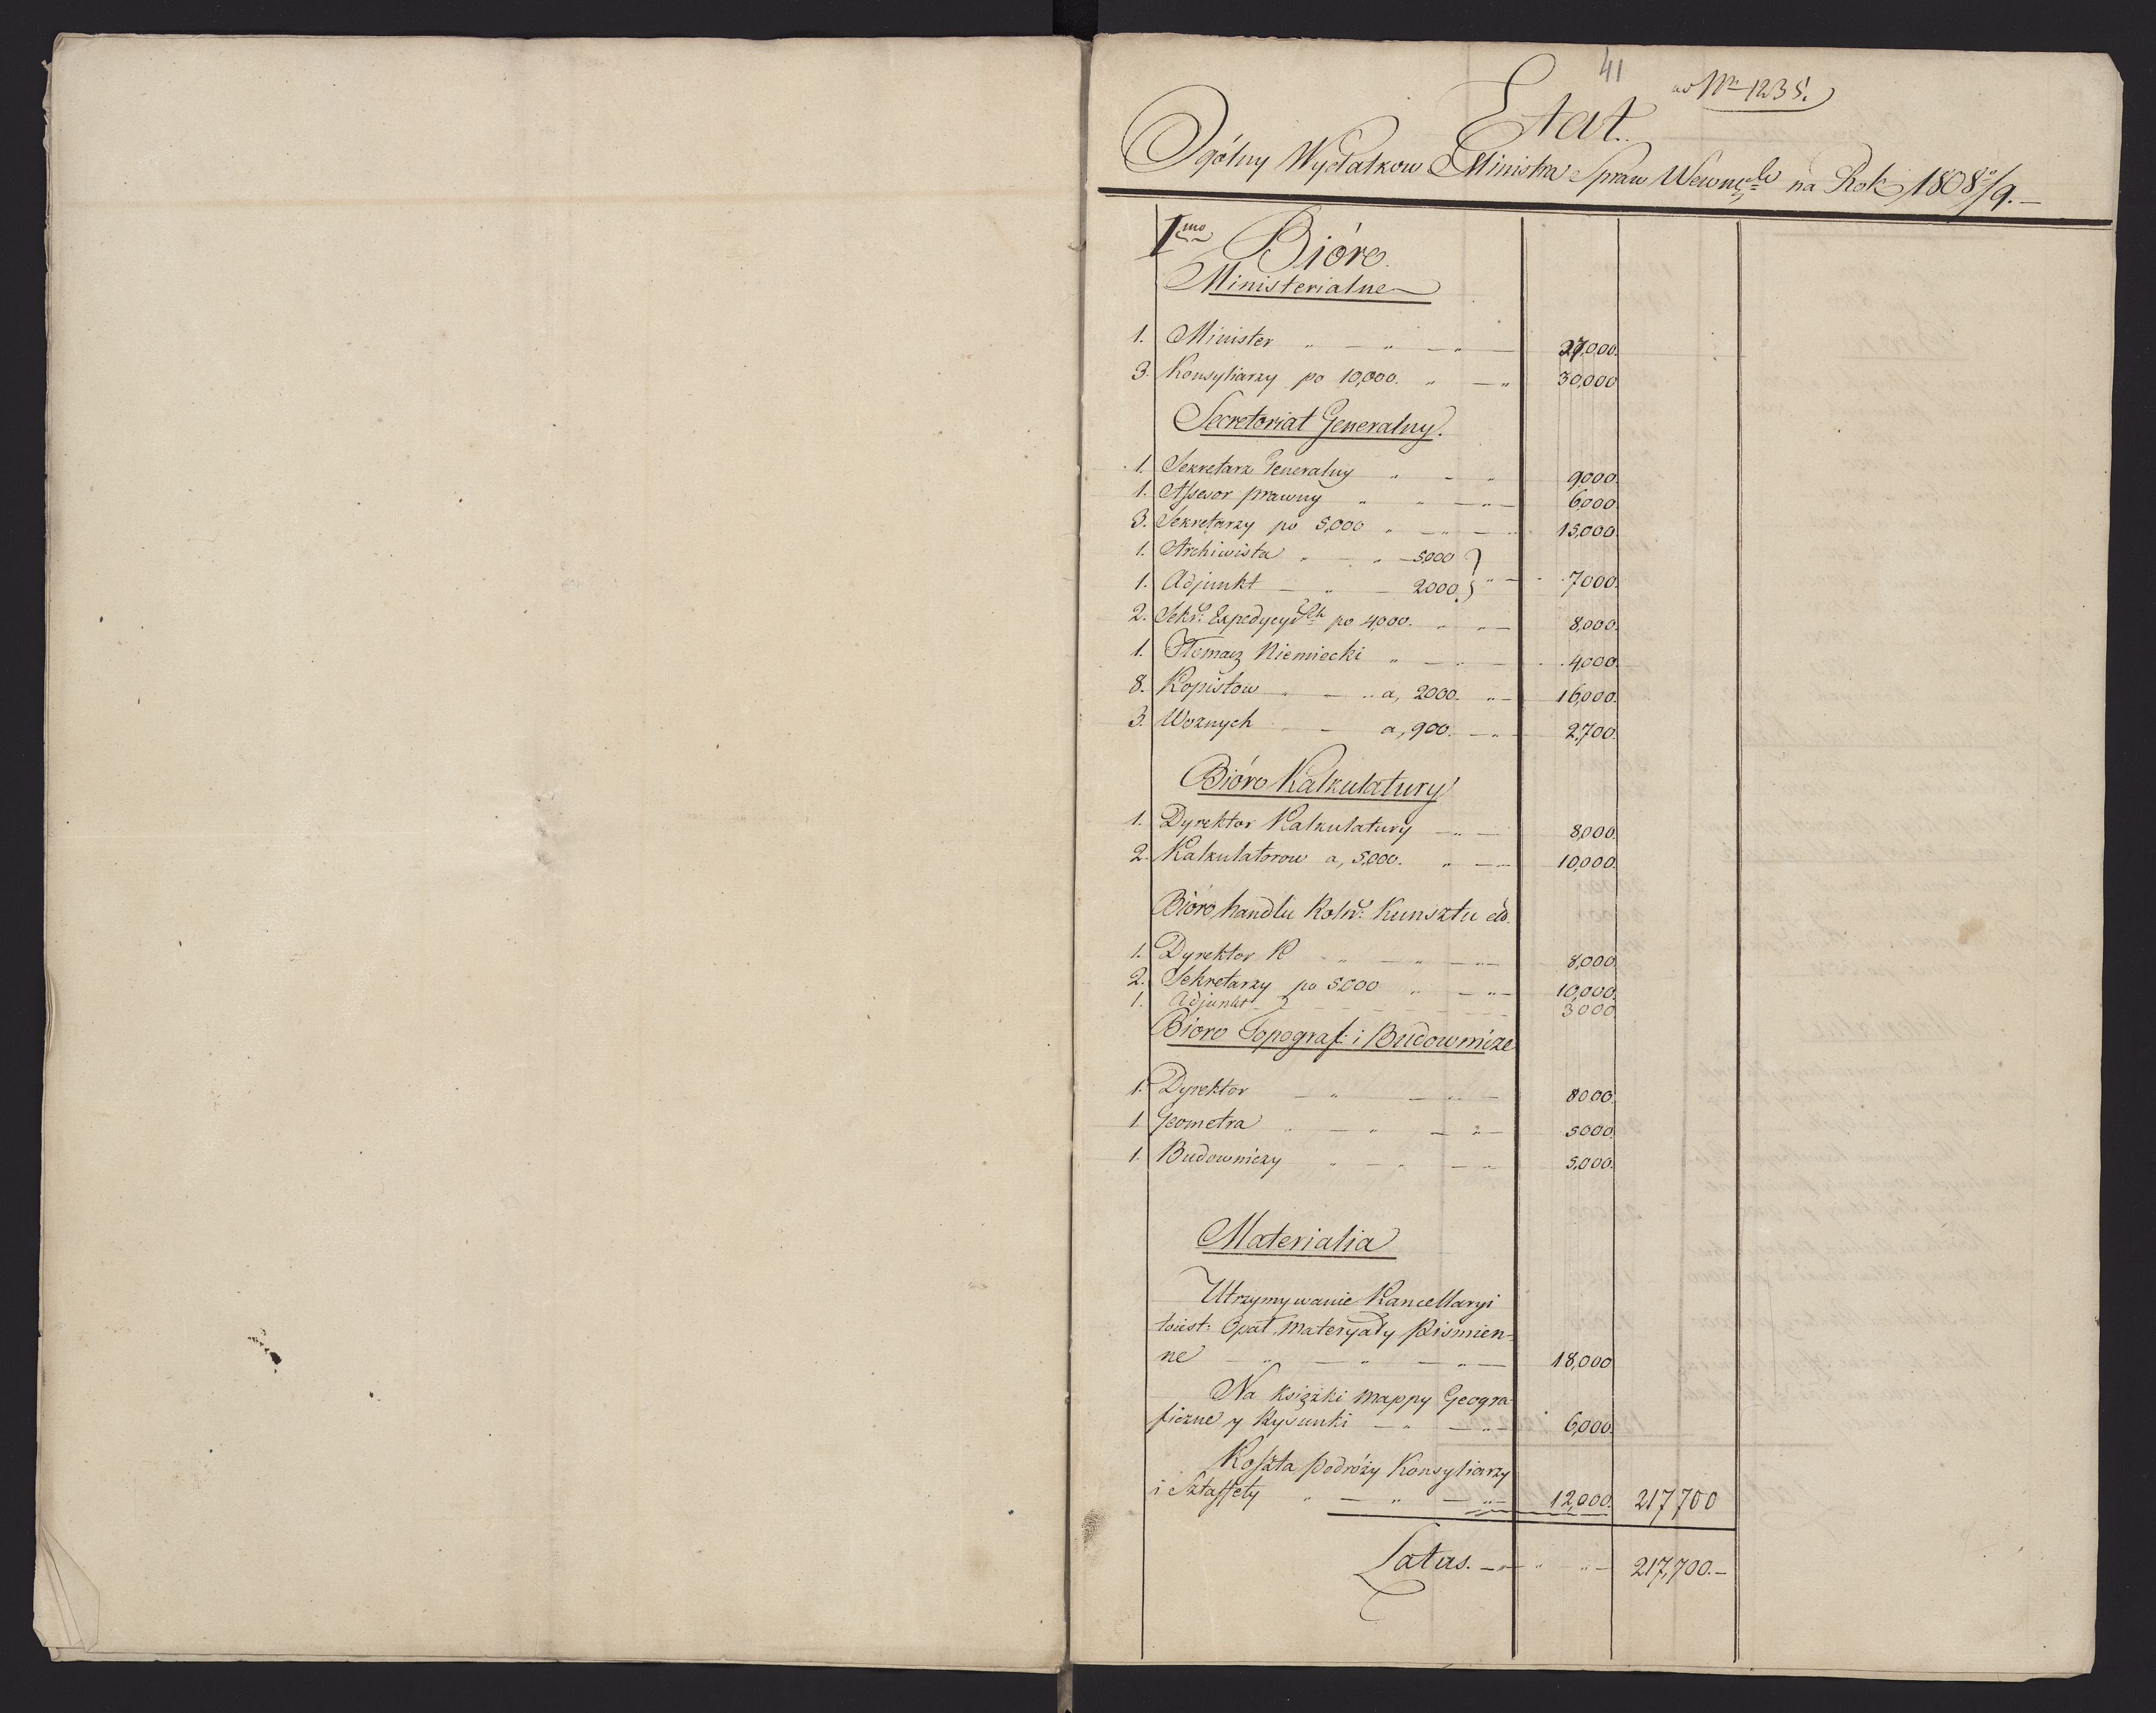 41
ad Nr 1235.
Etat
Ogólny Wydatkow Ministra Spraw Wewnę. na Rok 1808/9.—
Imo Bióro
Ministerialne
1. Minister 27,000.
3. Konsyliarzy po 10,000. 30,000
Secretoriat Generalny.
1. Sekretarz Generalny 9,000.
1. Assesor prawny 6,000.
3. Sekretarzy po 5,000 15,000.
1. Archiwista 5,000 }
1. Adjunkt 2000 } 7000.
2. Sekr: Expedycych po 4,000. 8,000.
1. Tłomacz Niemiecki 4,000.
8. Kopistow a, 2000. 16,000.
3. Woznych a, 900. 2,700.
Bióro Kalkulatury
1. Dyrektor Kalkulatury 8,000.
2. Kalkulatorow a, 5,000. 10,000.
Bióro handlu Roln: Kunsztu etc.
1. Dyrektor R 8,000.
2. Sekretarzy po 5000 10,000.
1. Adjunkt 3000
Bioro Topograf: i Budownicze
1. Dyrektor 8000.
1. Geometra 5000.
1. Budowniczy 5,000.
Materialia
Utrzymywanie Kancellaryi
toiest: Opał, Materyały Pismien-
ne 18,000
Na Książki Mappy Geogra-
ficzne y Rysunki 6,000.
Koszta Podróży Konsyliarzy
i Sztaffety 12,000. 217700
Latus. 217,700.—